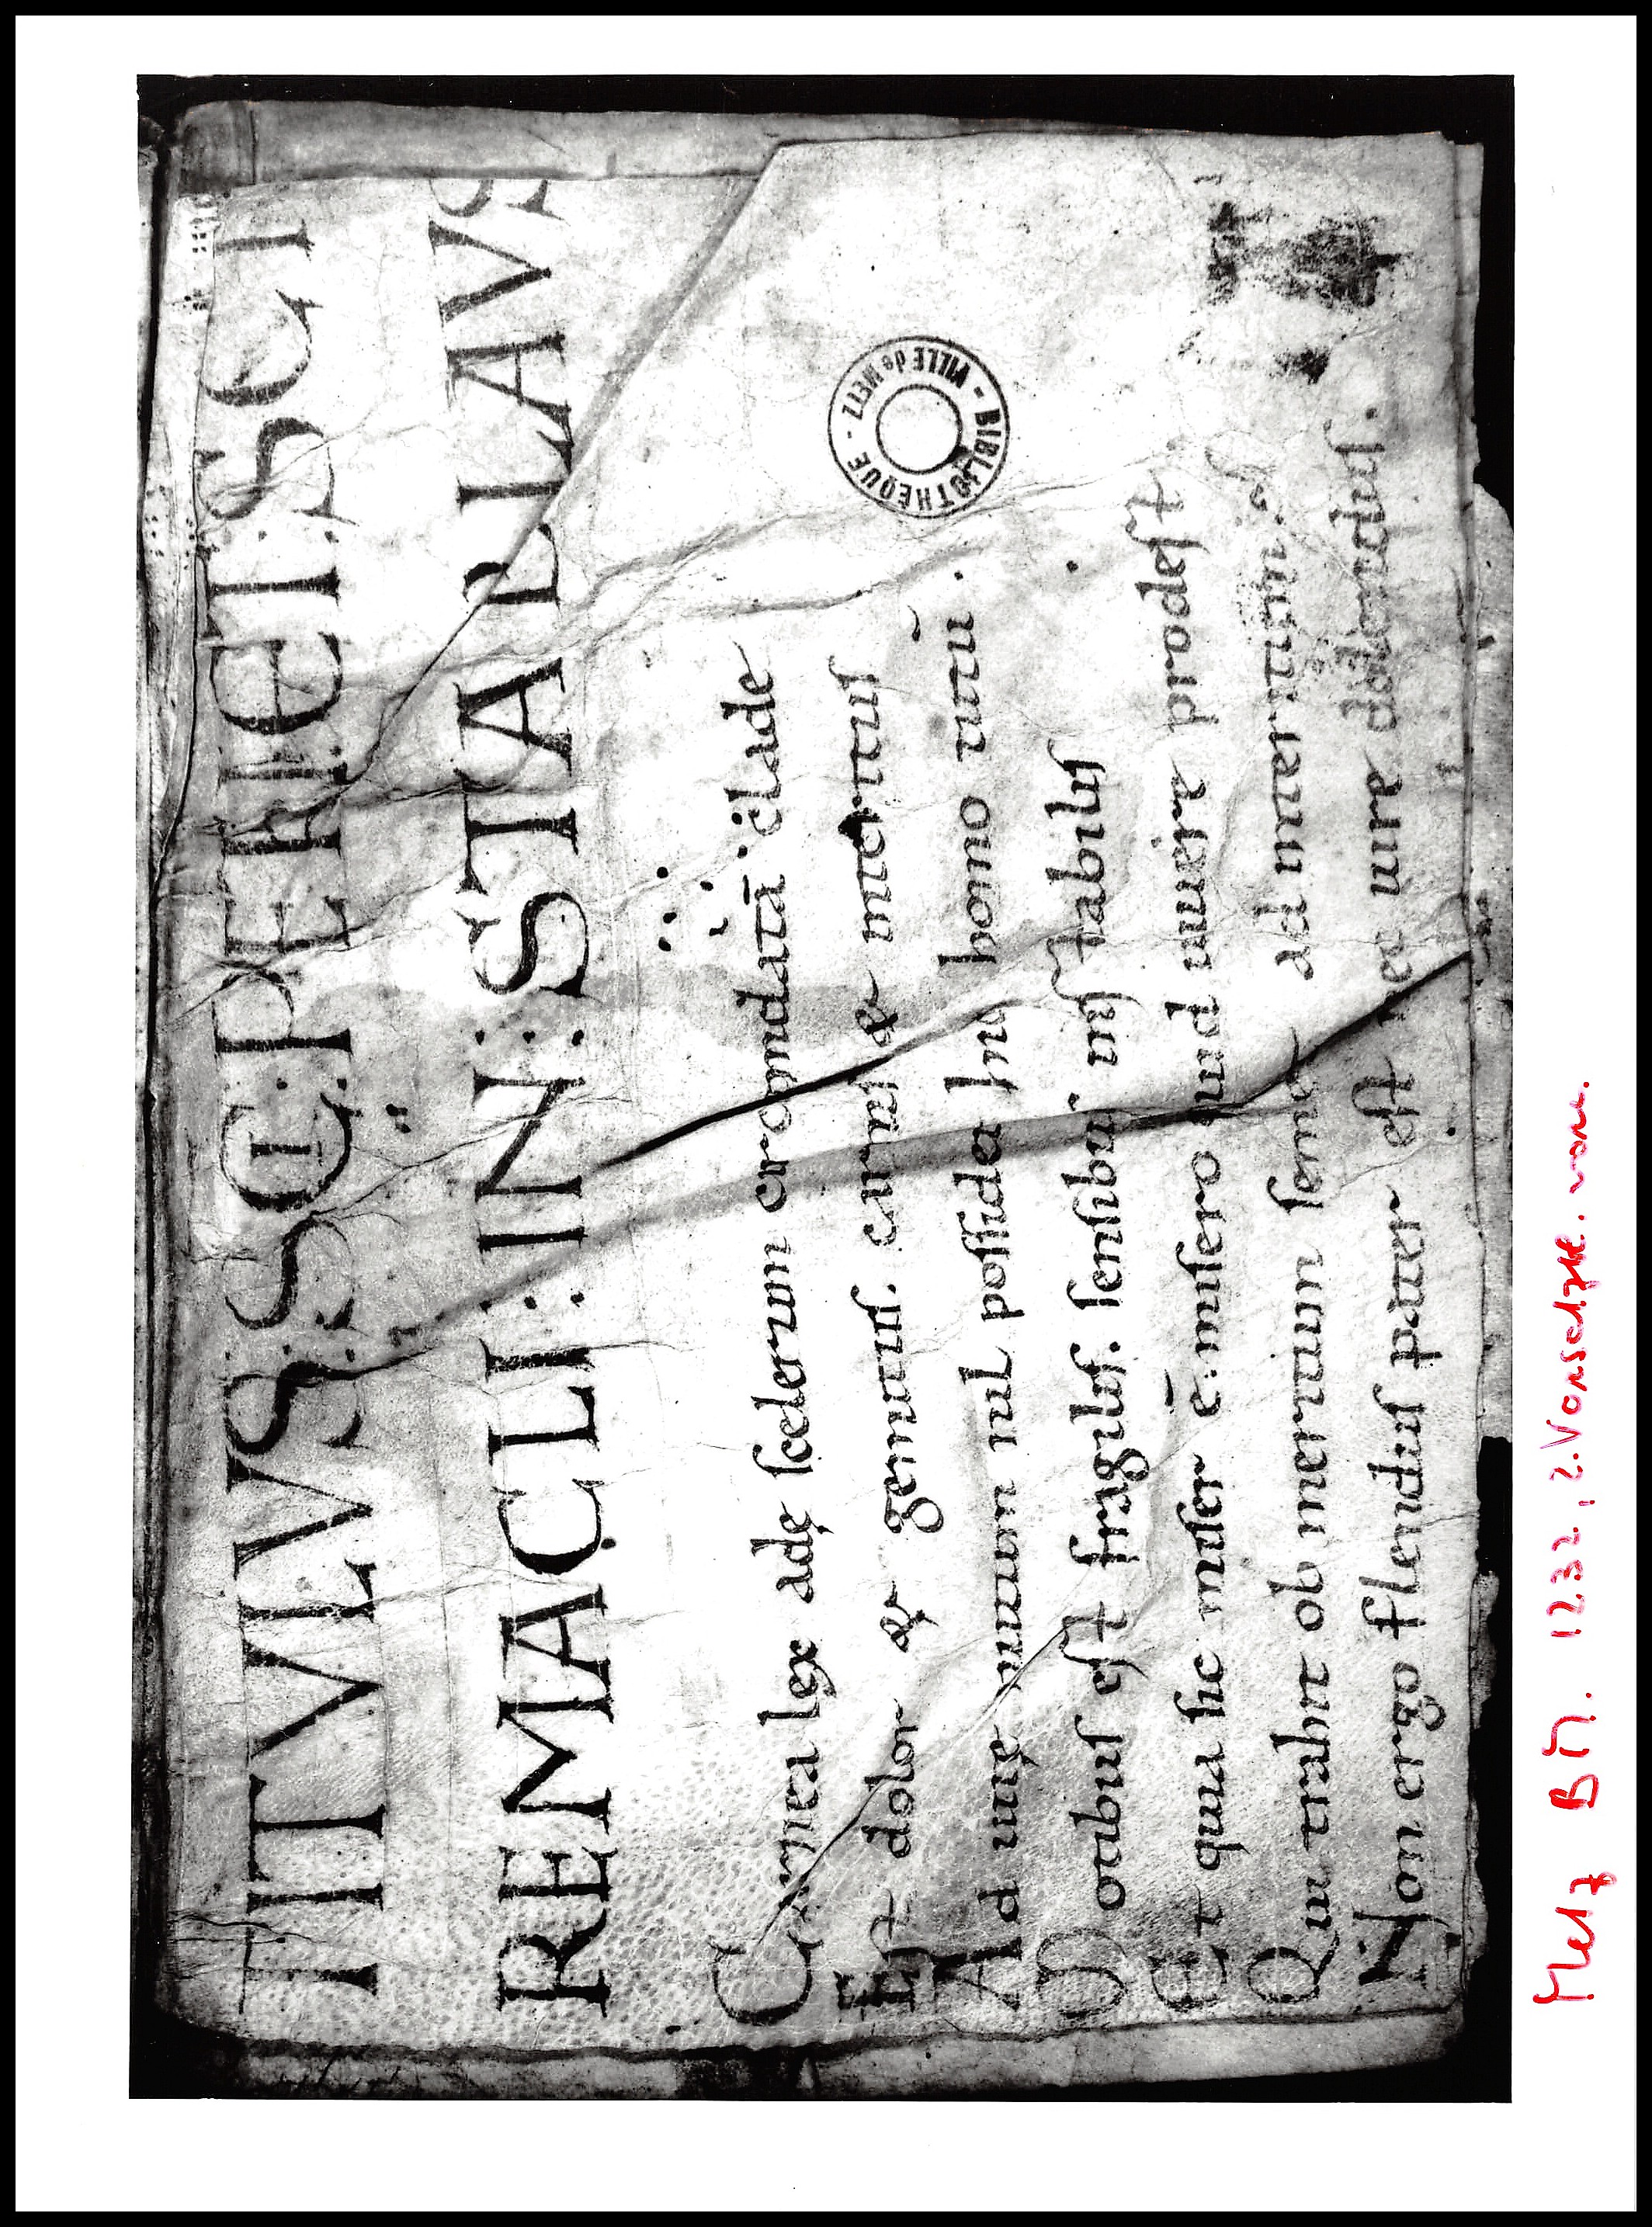 TITVLVS: SCI PERIGETIS CI
REMACLI: IN: STABLAVS
Carnea lex adę scelerum cromdatā clade
Est dolor & gemitus. carnis & interitus
Ad uitę uitam nil possidet hui homo uitū.
Dotibus est fragilis. sensibus inst abilis
Et quia sic miser ē. misero quid uiuere prodest
Qui trahit ob meritum semet ad interitum.
Non ergo flendus pater est nec iure dolendus.
BIBLIOTHEQUE - VILLE de METZ -
Metz BM. 1232, 2. Vorsatzbl. von.